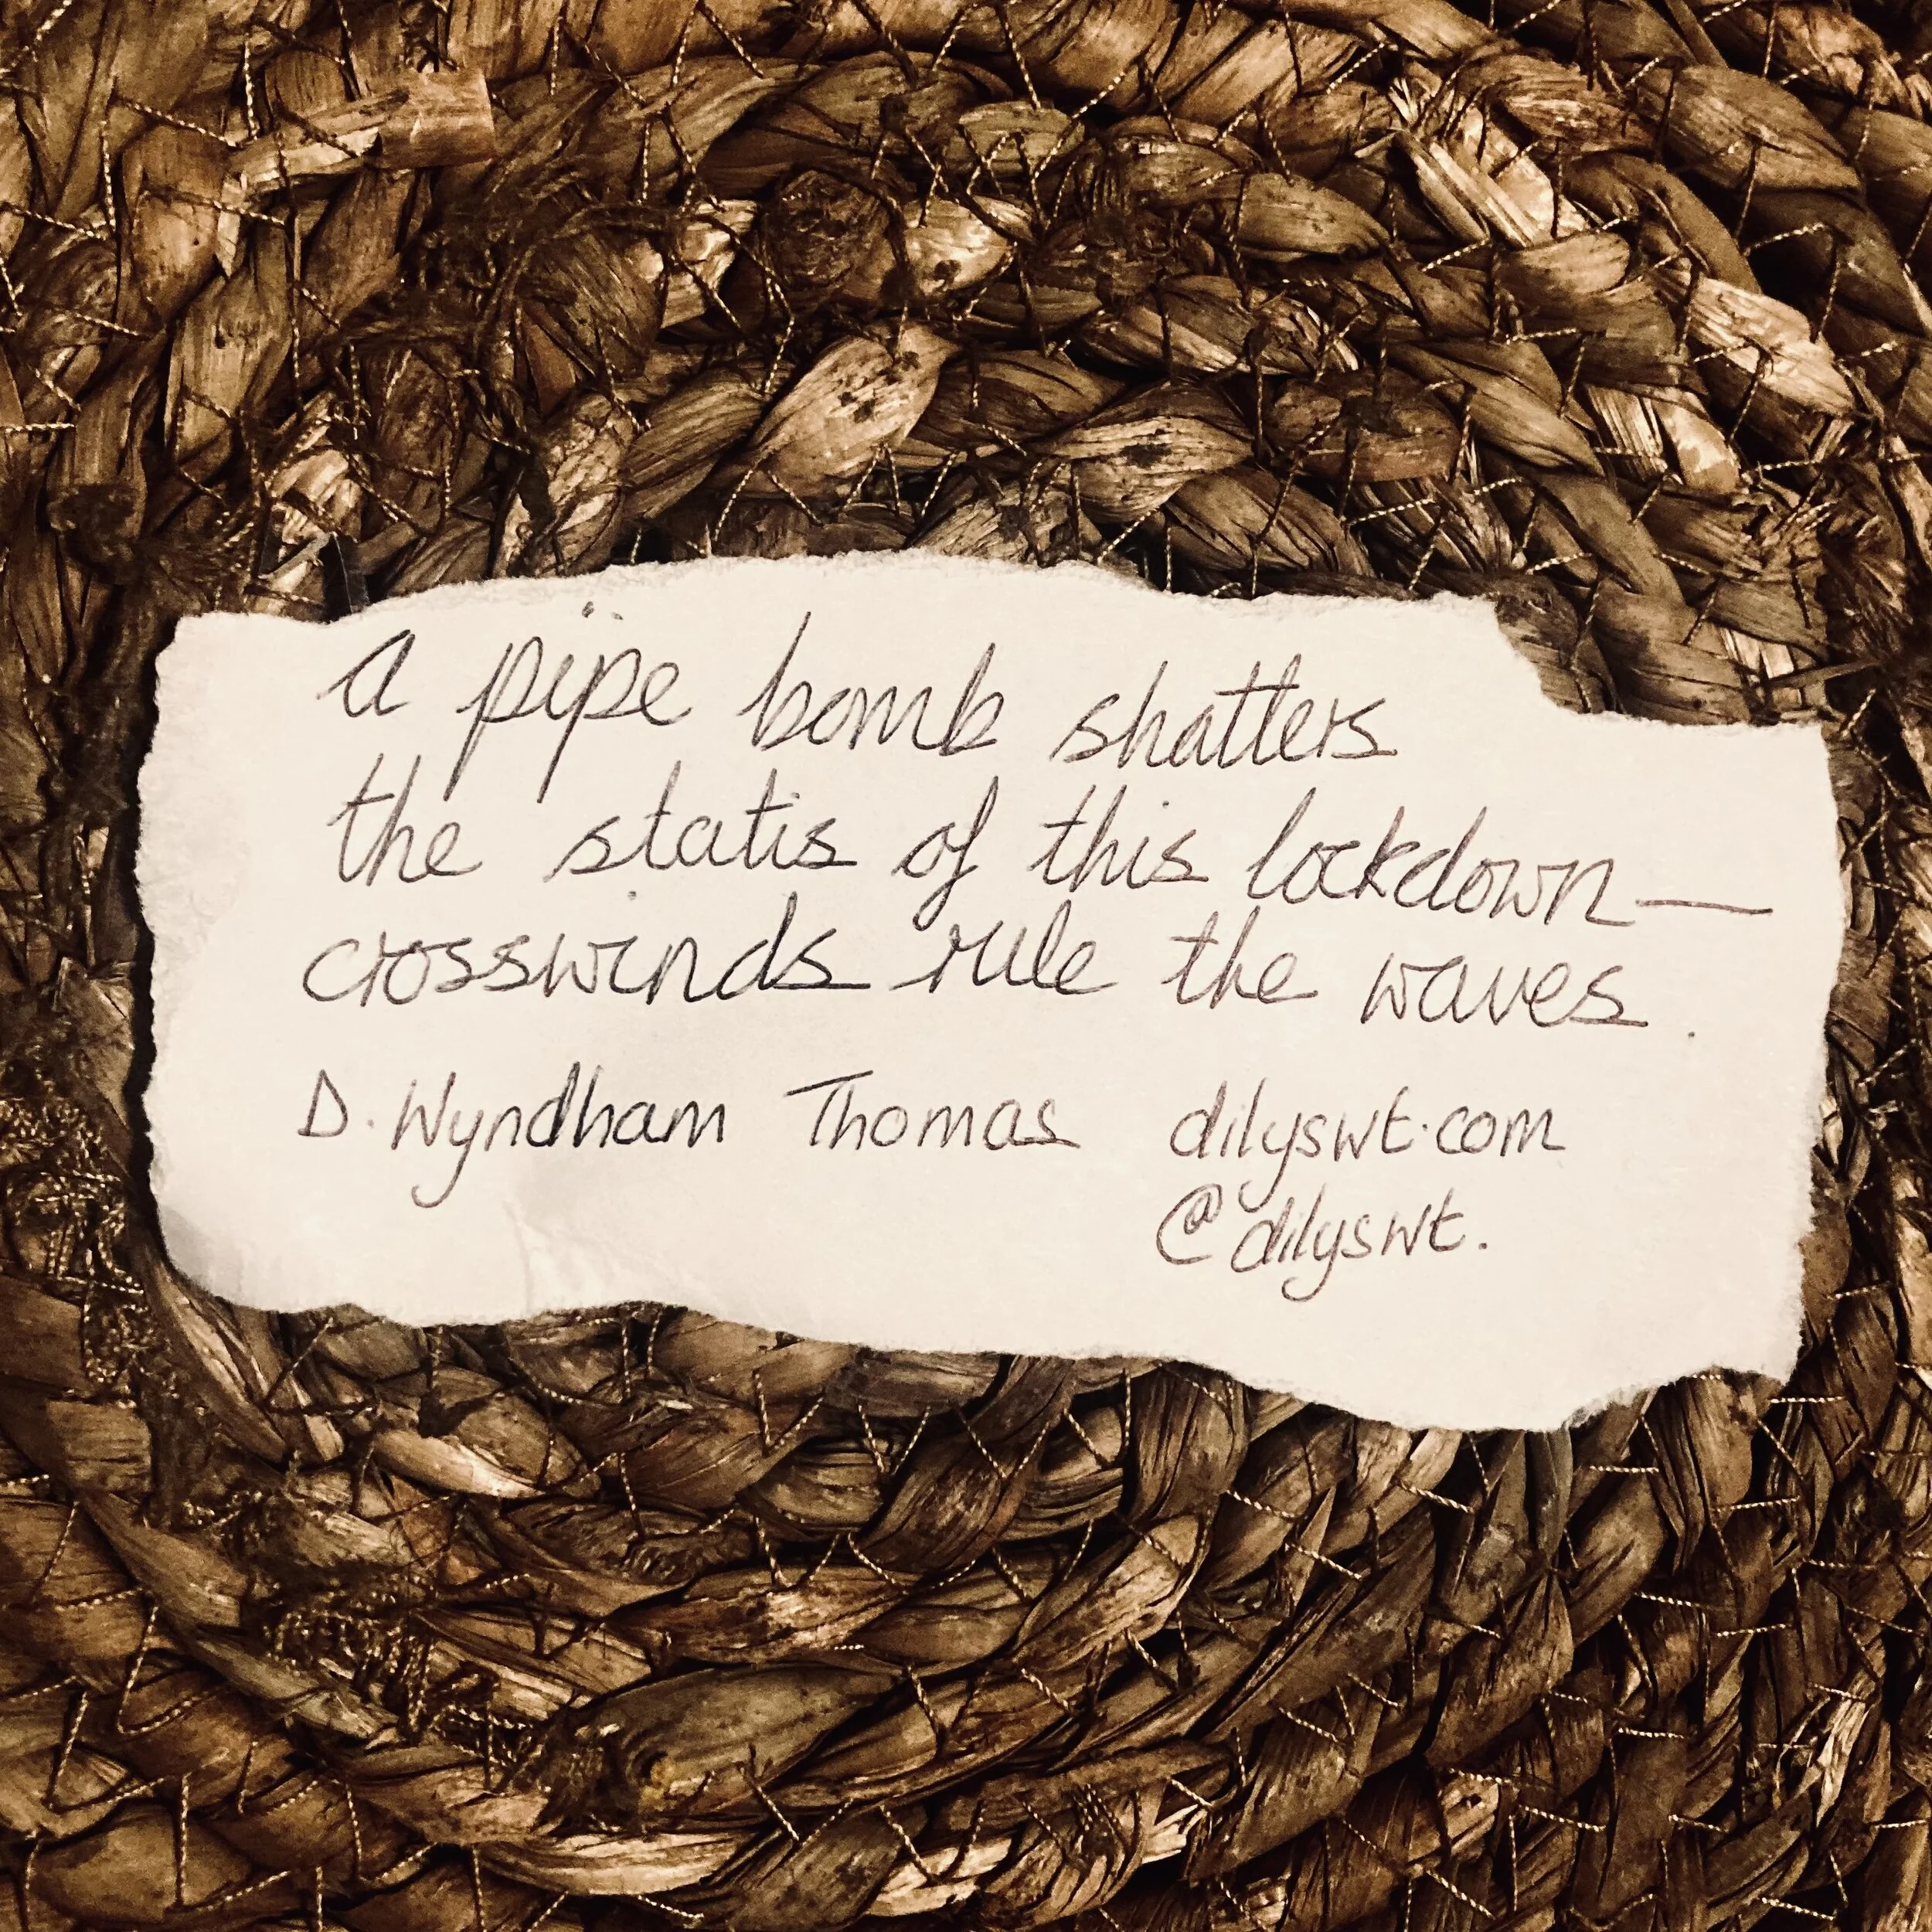 a pipe bomb shatters
the statis of this lockdown—
crosswinds rule the waves.
D. Wyndham Thomas dilyswt.com
@dilyswt.